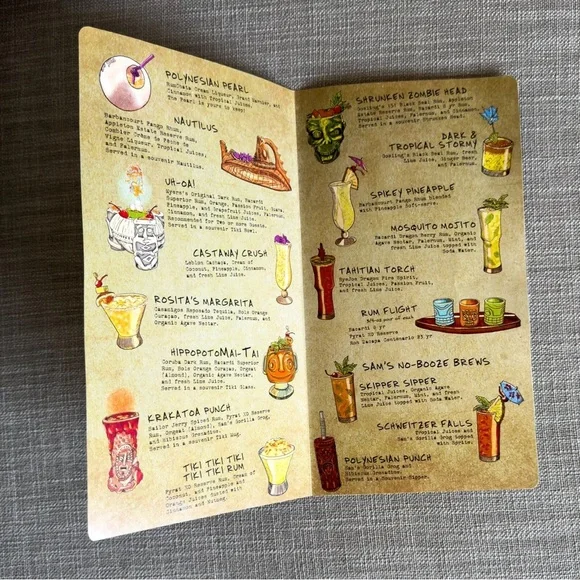 POLYNESIAN PEARL
RumChata Cream Liqueur, Grand Marnier, and
Cinnamon with Tropical Juices.
The Pearl is yours to keep!
NAUTILUS
Barbancourt Pango Rhum,
Appleton Estate Reserve Rum,
Combier Crème de Pêche de
Vigne Liqueur, Tropical Juices,
and Falernum.
Served in a souvenir Nautilus.
UH-OA!
Myers's Original Dark Rum, Bacardi
Superior Rum, Orange, Passion Fruit, Guava,
Pineapple, and Grapefruit Juices, Falernum,
Cinnamon, and fresh Lime Juice.
Recommended for Two or more Guests.
Served in a souvenir Tiki Bowl.
CASTAWAY CRUSH
Leblon Cachaça, Cream of
Coconut, Pineapple, Cinnamon,
and fresh Lime Juice.
ROSITA'S MARGARITA
Casamigos Reposado Tequila, Bols Orange
Curaçao, fresh Lime Juice, Falernum, and
Organic Agave Nectar.
HIPPOPOTOMAI-TAI
Coruba Dark Rum, Bacardi Superior
Rum, Bols Orange Curaçao, Orgeat
(Almond), Organic Agave Nectar,
and fresh Lime Juice.
Served in a souvenir Tiki Glass.
KRAKATOA PUNCH
Sailor Jerry Spiced Rum, Pyrat XO Reserve
Rum, Orgeat (Almond), Sam's Gorilla Grog,
and Hibiscus Grenadine.
Served in a souvenir Tiki Mug.
TIKI TIKI TIKI
TIKI TIKI RUM
Pyrat XO Reserve Rum, Cream of
Coconut, and Pineapple and
Orange Juices dusted with
Cinnamon and Nutmeg.
SHRUNKEN ZOMBIE HEAD
Gosling's 151 Black Seal Rum, Appleton
Estate Reserve Rum, Bacardi 8 yr Rum,
Tropical Juices, Falernum, and Cinnamon.
Served in a souvenir Shrunken Head.
DARK &
TROPICAL STORMY
Gosling's Black Seal Rum, fresh
Lime Juice, Ginger Beer,
and Falernum.
SPIKEY PINEAPPLE
Barbancourt Pango Rhum blended
with Pineapple Soft-serve.
MOSQUITO MOJITO
Bacardi Dragon Berry Rum, Organic
Agave Nectar, Falernum, Mint, and
fresh Lime Juice topped with
Soda Water.
TAHITIAN TORCH
RyeJoa Dragon Fire Spirit,
Tropical Juices, Passion Fruit,
and fresh Lime Juice.
RUM FLIGHT
Bacardi 8 yr
Pyrat XO Reserve
Ron Zacapa Centenario 23 yr
SAM'S NO-BOOZE BREWS
SKIPPER SIPPER
Tropical Juices, Organic
Agave Nectar, Falernum,
Mint, and fresh Lime Juice
topped with Soda Water.
SCHWEITZER FALLS
Tropical Juices and
Sam's Gorilla Grog topped
with Sprite.
POLYNESIAN PUNCH
Sam's Gorilla Grog and
Hibiscus Grenadine.
Served in a Souvenir Sipper.